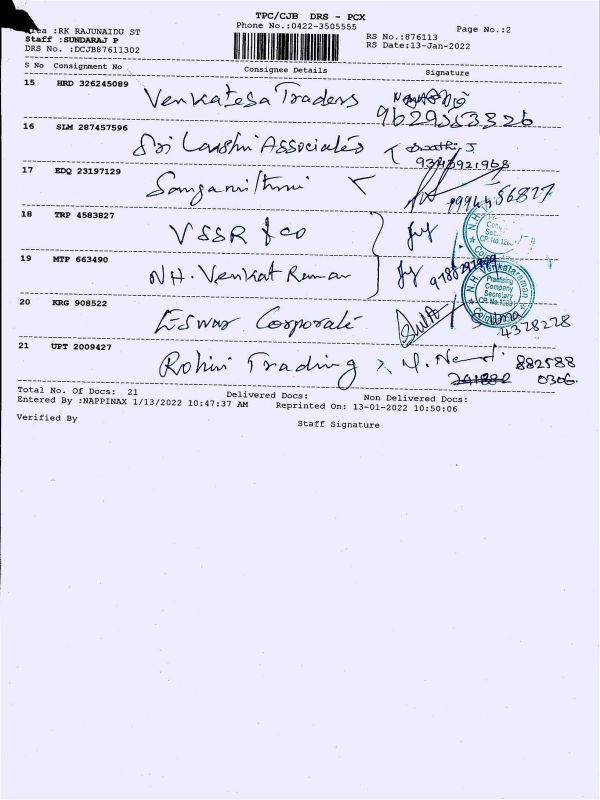 TPC/CJB DRS - PCX
Phone No.:0422-3505555
Page No.:2
Area :RK RAJUNAIDU ST
Staff :SUNDARAJ P
DRS No. :DCJB87611302
RS No.:876113
RS Date:13-Jan-2022
S No Consignment No Consignee Details Signature
15 HRD 326245089 Venkatesa Traders
9629553326
16 SLM 287457596 Sri Lakshmi Associates
17 EDQ 23197129 Sangamithrai
18 TRP 4583827 VSSR & co
19 MTP 663490 N.H. Venkat Raman
N.H. Venkataraman
Practising
Company
Secretary
20 KRG 908522 Eswar Corporate
4328228
21 UPT 2009427 Rohini Trading
882588
0306
Total No. Of Docs: 21 Delivered Docs: Non Delivered Docs:
Entered By :NAPPINAX 1/13/2022 10:47:37 AM Reprinted On: 13-01-2022 10:50:06
Verified By Staff Signature